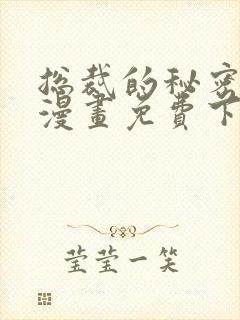 总裁的秘密
漫畫免费下
莹莹一笑